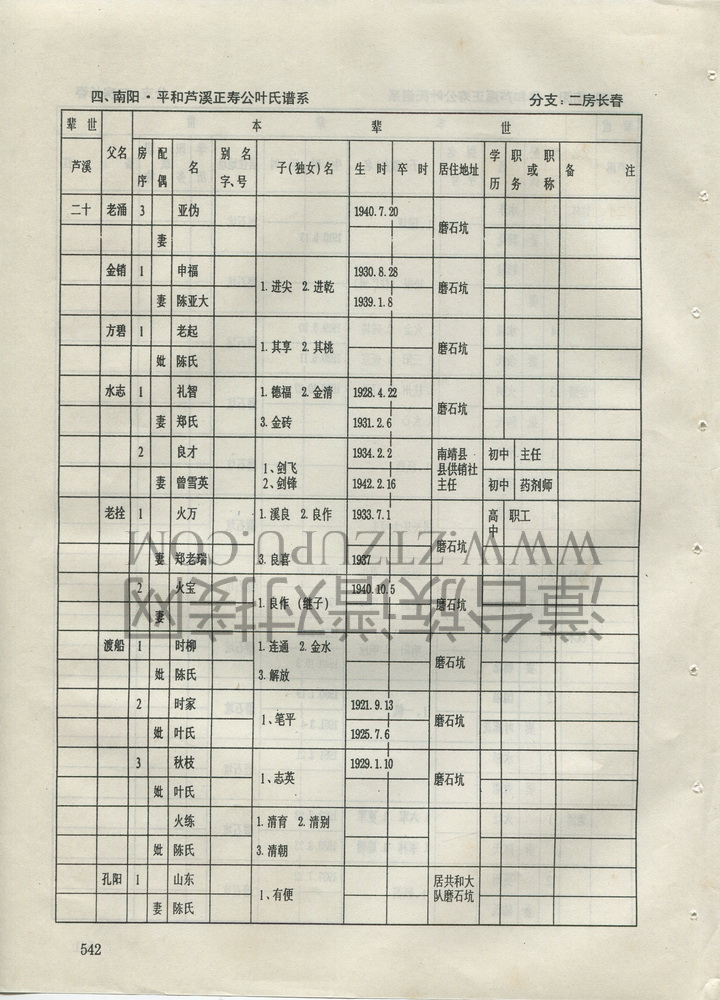 四、南阳·平和芦溪正寿公叶氏谱系 分支：二房长春
辈世 本 辈 世
芦溪 父名 房序 配偶 名 别名字、号 子(独女)名 生时 卒时 居住地址 学历 职务或职称 备注
二十 老涌 3 亚伪 1940.7.20 磨石坑
妻
金销 1 申福 1.进尖 2.进乾 1930.8.28 磨石坑
妻 陈亚大 1939.1.8
方碧 1 老起 1.其享 2.其桃 磨石坑
妣 陈氏
水志 1 礼智 1.德福 2.金清 1928.4.22 磨石坑
妻 郑氏 3.金砖 1931.2.6
2 良才 1、剑飞 1934.2.2 南靖县县供销社主任 初中 主任
妻 曾雪英 2、剑锋 1942.2.16 初中 药剂师
老拴 1 火万 1.溪良 2.良作 1933.7.1 磨石坑 高中 职工
妻 郑老瑞 3.良喜 1937
2 火宝 1.良作（继子） 1940.10.5 磨石坑
妻
渡船 1 时柳 1.连通 2.金水 磨石坑
妣 陈氏 3.解放
2 时家 1、笔平 1921.9.13 磨石坑
妣 叶氏 1925.7.6
3 秋枝 1、志英 1929.1.10 磨石坑
妣 叶氏
火练 1.清育 2.清别
妣 陈氏 3.清朝
孔阳 1 山东 1、有便 居共和大队磨石坑
妻 陈氏
542
WWW.ZTZUPU.COM
漳台族谱对接网